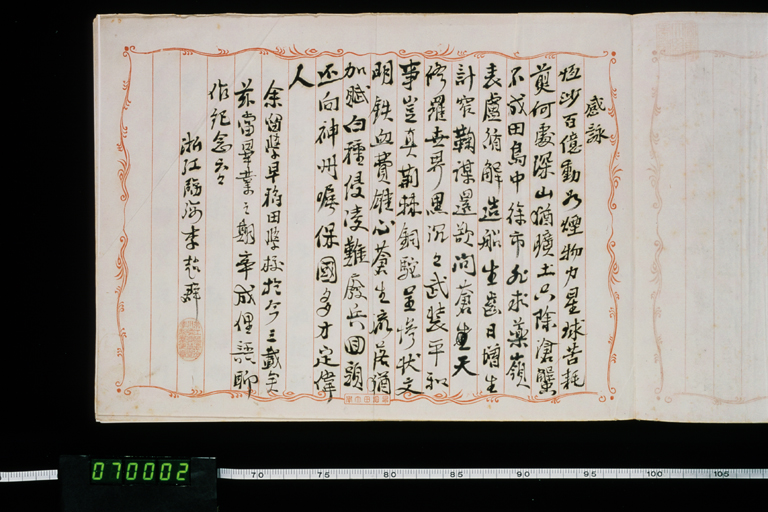 感詠
恆沙百億動如煙物力星球苦耗
莫何處深山猶曠土只除滄蟹
不成田島中徐市求藥嶺
表盧循解造船生齒日增生
計窄鞠謀還欲問蒼天
修羅世界黑沉々武裝平和
事豈真荊棘銅駝呈慘狀文
明鉄血費雄心蒼生流居猶
加賦白種侵凌難廢兵回頭
還向神州喚保國多才定偉
人
余留學早稻田學校於今三載矣
茲當畢業之期率成俚語聊
作紀念云々
浙江臨海李
070002
70 75 80 85 90 95 100 105